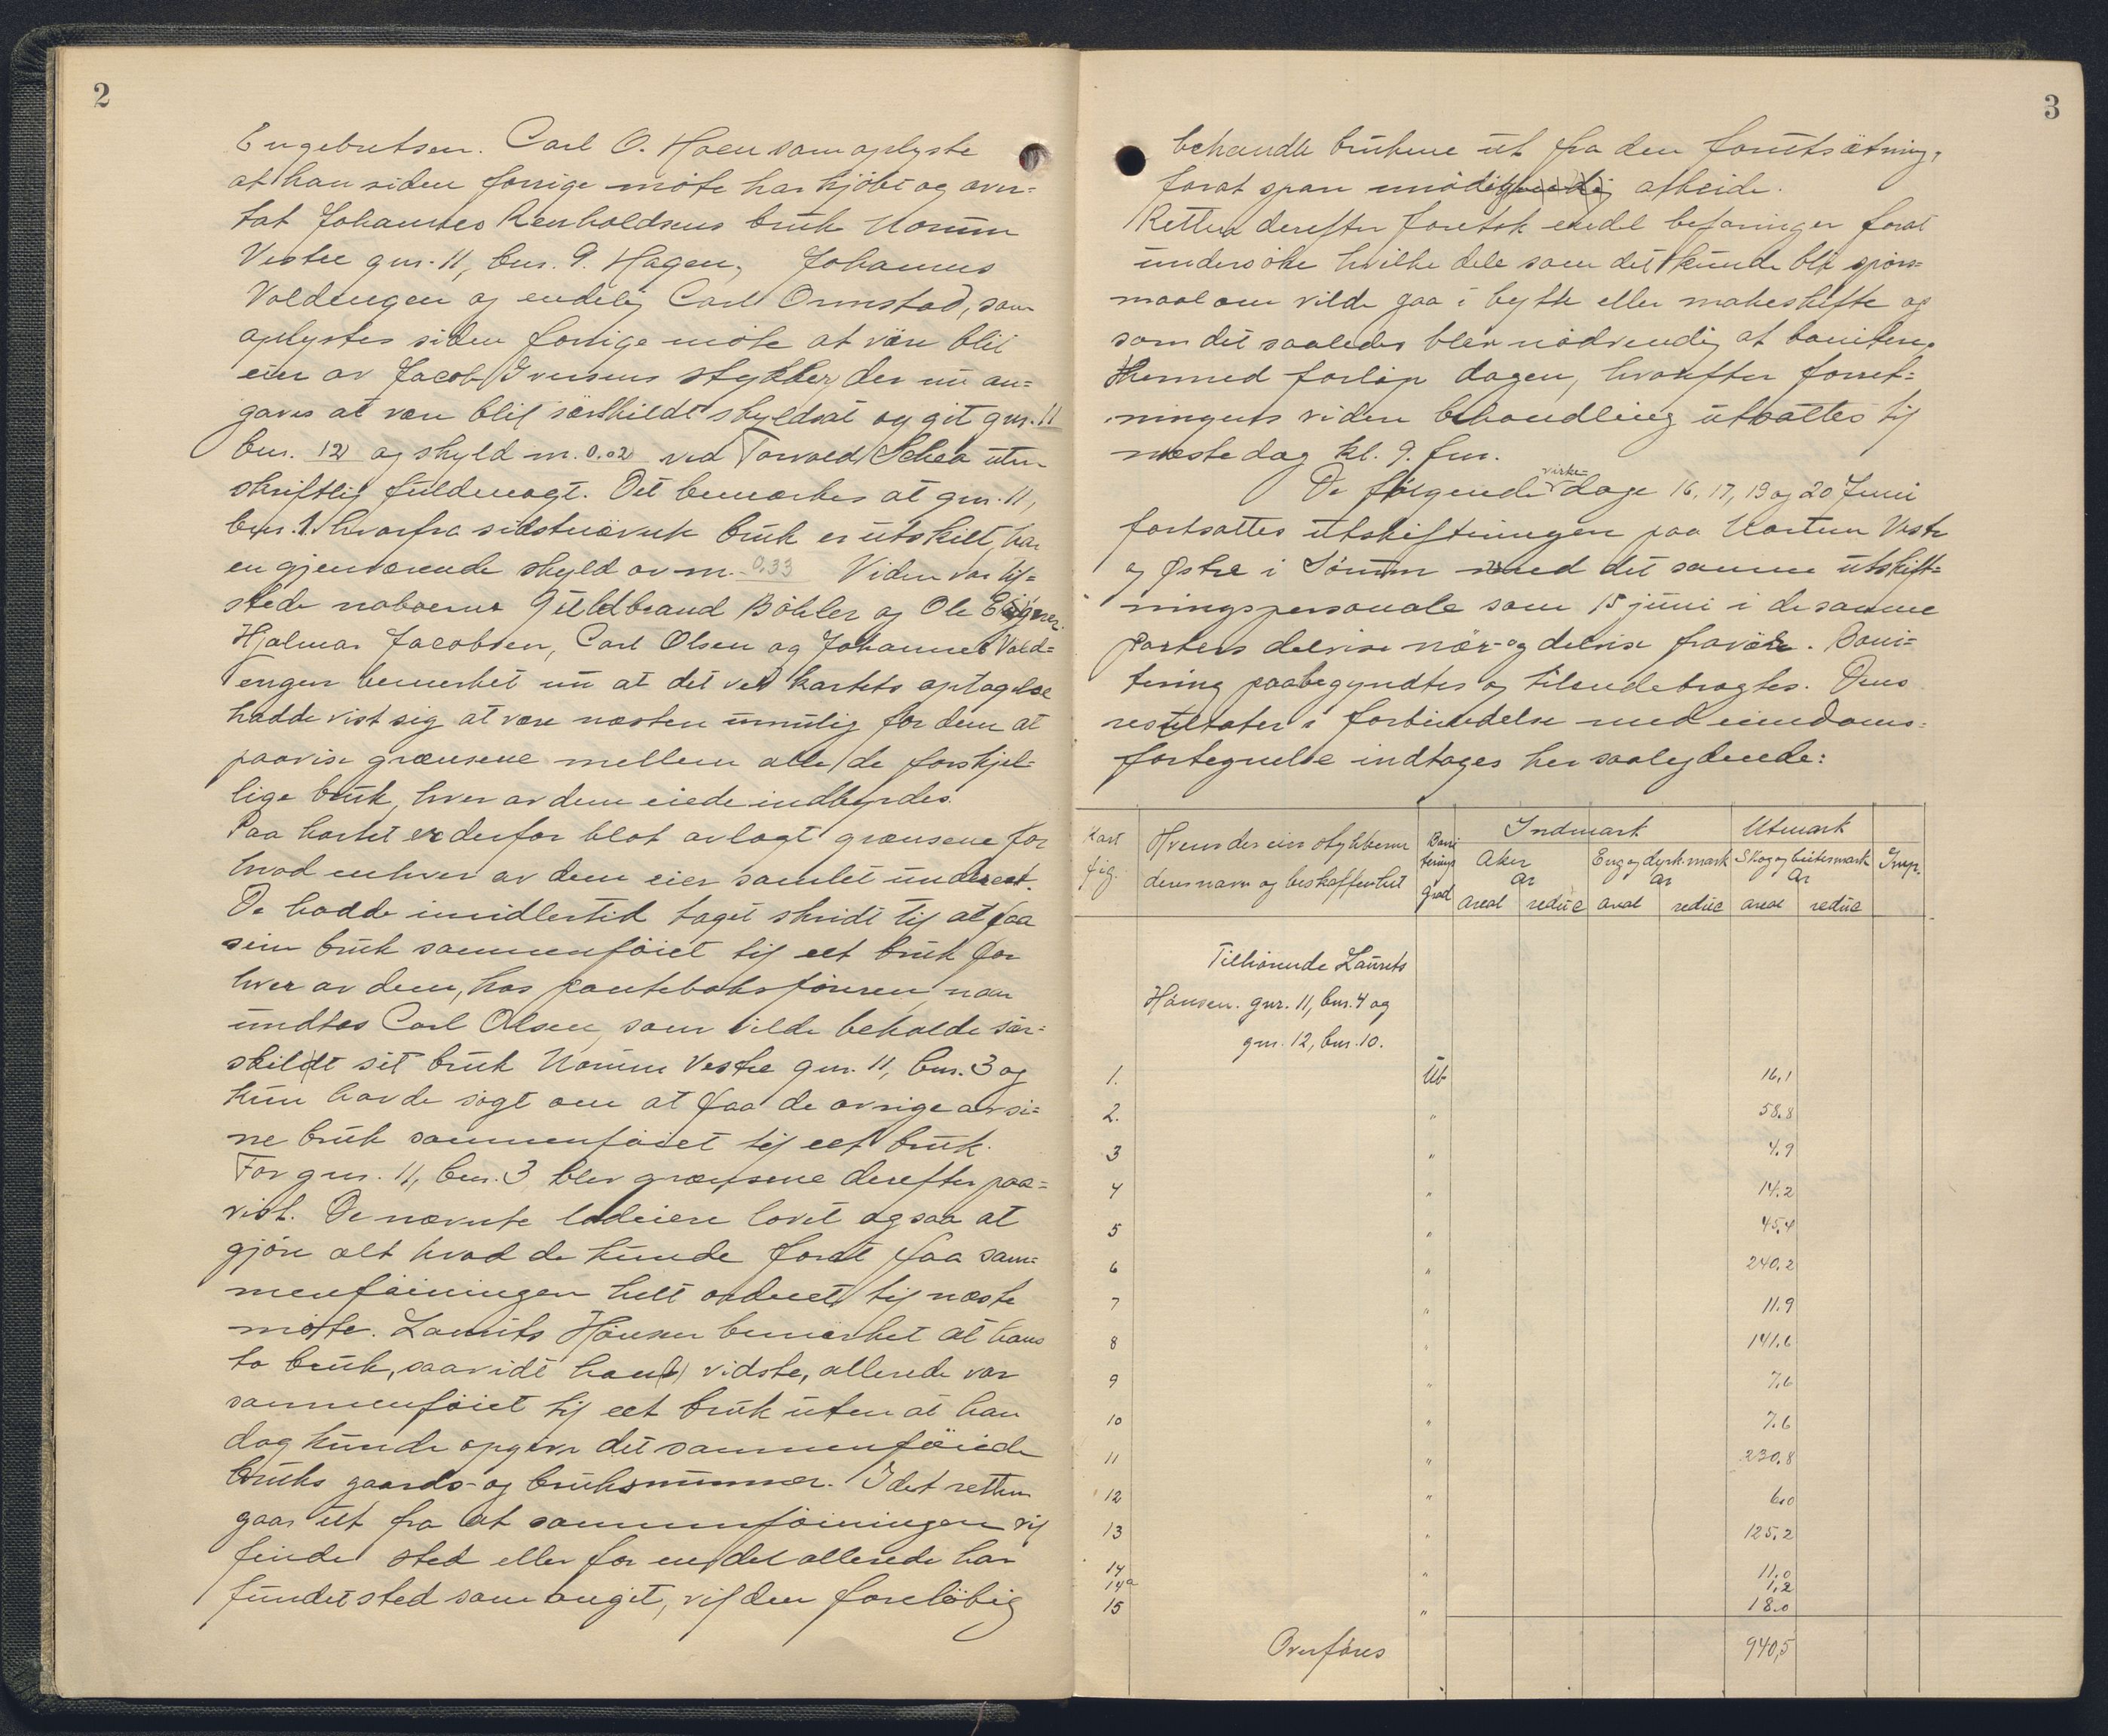 2
Engebretsen. Carl O. Hoen som oplyste
at han siden forrige møte har kjöbt og over-
tat Johannes Renholdsens bruk Norum
Vestre gnr. 11, bnr. 9. Hagen, Johannes
Voldengen og endelig Carl Ormstad, som
oplystes siden forrige möte at väre blit
eier av Jacob Iversens stykker, der nu an-
gaves at være blit särskildt skyldsat og git gnr. 11
bnr. 12 og skyld m. 0.02 ved Torvald Schea uten
skriftlig fuldmagt. Det bemærkes at gnr. 11,
bnr. 1. hvorfra sidstnævnte bruk er utskilt, har
en gjenværende skyld av m. 0.33 Viden var til-
stede naboerne Guldbrand Böhler og Ole
Hjalmar Jacobsen, Carl Olsen og Johannes Vold-
engen bemerket nu at det ved kartets optagelse
hadde vist sig at være næsten umulig for dem at
paavise grænsene mellem alle de forskjel-
lige bruk, hver av dem eiede indbyrdes.
Paa kartet er derfor blot avlagt grænsene for
hvad enhver av dem eier samlet underet.
De hadde imidlertid taget skridt til at faa
sine bruk sammenföiet til eet bruk for
hver av dem, hos panteboksföreren, naar
undtas Carl Olsen, som vilde beholde sär-
skildt sit bruk Norum Vestre gnr. 11, bnr. 3 og
kun havde søgt om at faa de övrige av si-
ne bruk sammenföiet til eet bruk.
For gnr. 11, bnr. 3 blev grænsene derefter paa-
vist. De nævnte lodeiere lovet ogsaa at
gjöre alt hvad de kunde forat faa sam-
menföiningen helt ordnet til næste
møte. Laurits Hansen bemärket at hans
to bruk, saavidt han vidste, allerede var
sammenföiet til eet bruk uten at han
dog kunde opgive det sammenföiede
bruks gaards- og bruksnummer. Idet retten
gaar ut fra at sammenföiningen vil
finde sted eller for en del allerede har
fundet sted som angit, vil den foreløbig
3
behandle brukene ut fra den forutsätning,
forat spare unödig arbeide.
Retten derefter foretok endel befaringer forat
undersöke hvilke dele som det kunde bli spörs-
maal om vilde gaa i bytte eller makeskifte og
som det saaledes blev nödvendig at bonitere.
Hermed forløp dagen, hvorefter forret-
ningens videre behandling utsattes til
næste dag kl. 9. fm.
De følgende virke- dage 16, 17, 19 og 20 Juni
fortsattes utskiftningen paa Norum Vestre
og Østre i Sörum med det samme utskift-
ningspersonale som 15 juni i de samme
parters delvise nær- og delvise fravär. Boni-
tering paabegyndtes og tilendebragtes. Dens
resultater i forbindelse med eiendoms-
fortegnelse indtages her saalydende:
Kart fig. Hvem der eier stykkerne deres navn og beskaffenhet Boniterings grad Indmark Utmark
Aker Eng og dyrk. mark Skog og beitesmark Imp.
ar ar ar
areal reduc areal reduc areal reduc
Tilhörende Laurits
Hansen. gnr. 11, bnr. 4 og
gnr. 12, bnr. 10.
1. Ub 16,1
2. " 58.8
3 " 4.9
4 " 14.2
5 " 45.4
6 " 240.2
7 " 11.9
8 " 141.6
9 " 7.6
10 " 7.6
11 " 230.8
12 " 6.0
13 " 125.2
14 " 11.0
14a 1,2
15 " 18.0
Overföres 940,5